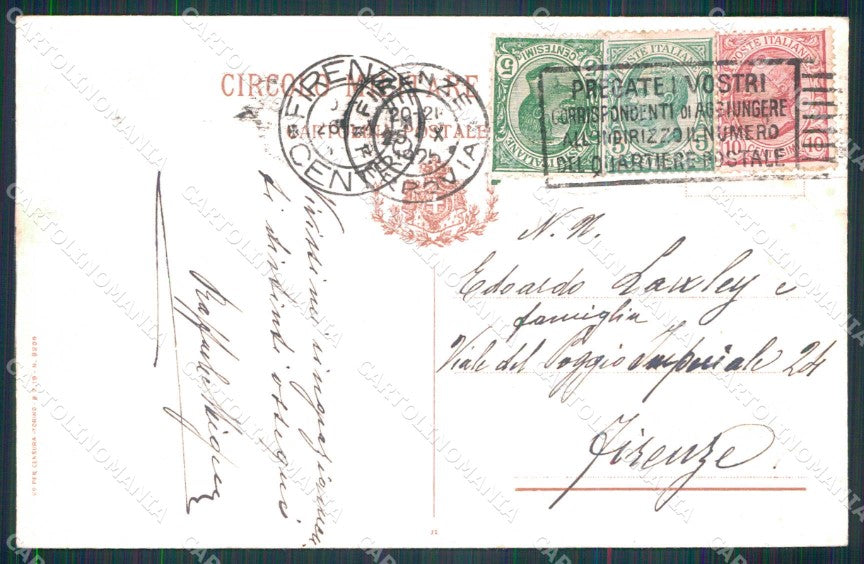 CIRCOLO MILITARE
CARTOLINA POSTALE
FIRENZE
CENTRO
FERROVIA
20-21
X
1925
PREGATE I VOSTRI
CORRISPONDENTI DI AGGIUNGERE
ALL'INDIRIZZO IL NUMERO
DEL QUARTIERE POSTALE
POSTE ITALIANE
CENTESIMI
5
POSTE ITALIANE
5
POSTE ITALIANE
10 CENTESIMI 10
N. N.
Edoardo Laxley e
famiglia
Viale del Poggio Imperiale 24
Firenze.
Vivissimi ringraziamen.
di distinti ossequi
CARTOLINOMANIA